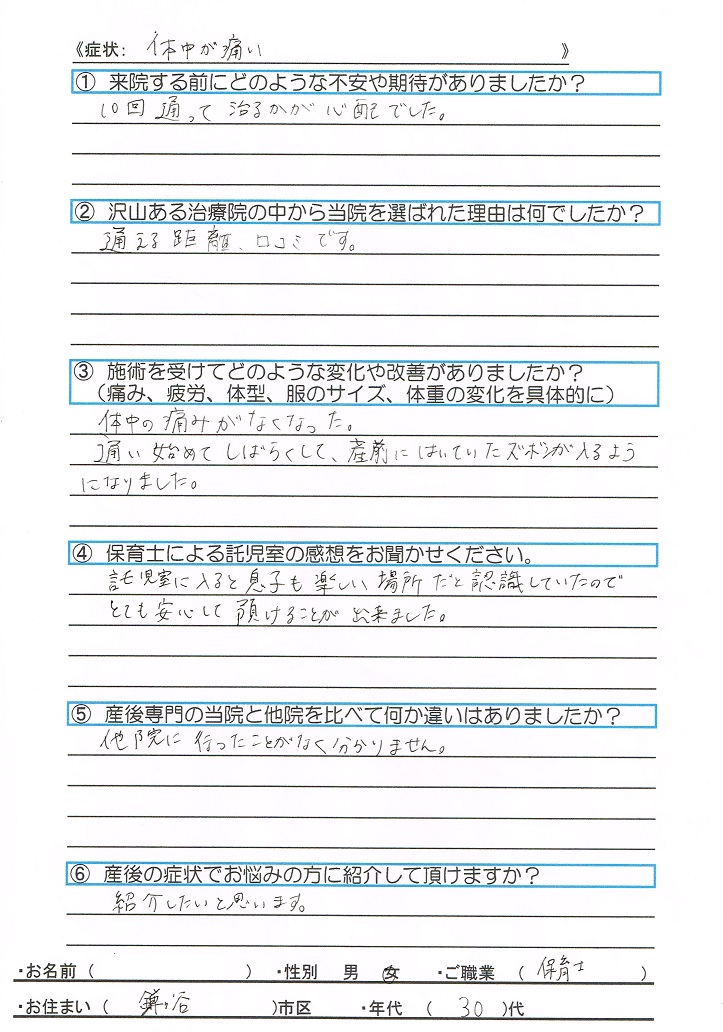 《症状: 体中が痛い 》
① 来院する前にどのような不安や期待がありましたか？
10回通って治るかが心配でした。
② 沢山ある治療院の中から当院を選ばれた理由は何でしたか？
通える距離、口コミです。
③ 施術を受けてどのような変化や改善がありましたか？
（痛み、疲労、体型、服のサイズ、体重の変化を具体的に）
体中の痛みがなくなった。
通い始めてしばらくして、産前にはいていたズボンが入るよう
になりました。
④ 保育士による託児室の感想をお聞かせください。
託児室に入ると息子も楽しい場所だと認識していたので
とても安心して預けることが出来ました。
⑤ 産後専門の当院と他院を比べて何か違いはありましたか？
他院に行ったことがなく分かりません。
⑥ 産後の症状でお悩みの方に紹介して頂けますか？
紹介したいと思います。
・お名前（ ） ・性別 男 女 ・ご職業 （ 保育士 ）
・お住まい（ 鎌ヶ谷 ）市区 ・年代 （ 30 ）代